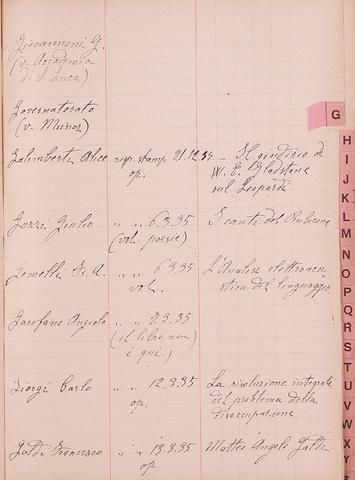 Giovannoni G.
(v. Accademia
di S. Luca)
Governatorato
(v. Muñoz)
Galimberti Alice risp. stamp. 21.12.34. - Il giudizio di
op. W. E. Gladstone
sul Leopardi
Gozzi Giulio " " 6.3.35 I canti del Rubicone
(vol. poesie)
Gemelli Fr. A. " " 6.3.35 L'Analisi elettroacu-
vol. stica del linguaggio
Garofano Angiolo " " 2.3.35
(il libro non
è qui)
Giorgi Carlo " " 12.3.35 La rivoluzione integrale
op. del problema della
disoccupazione
Galdi Francesco " " 13.3.35 Matteo Angelo Galdi
op.
G
H
I
J
K
L
M
N
O
P
Q
R
S
T
U
V
W
X
Y